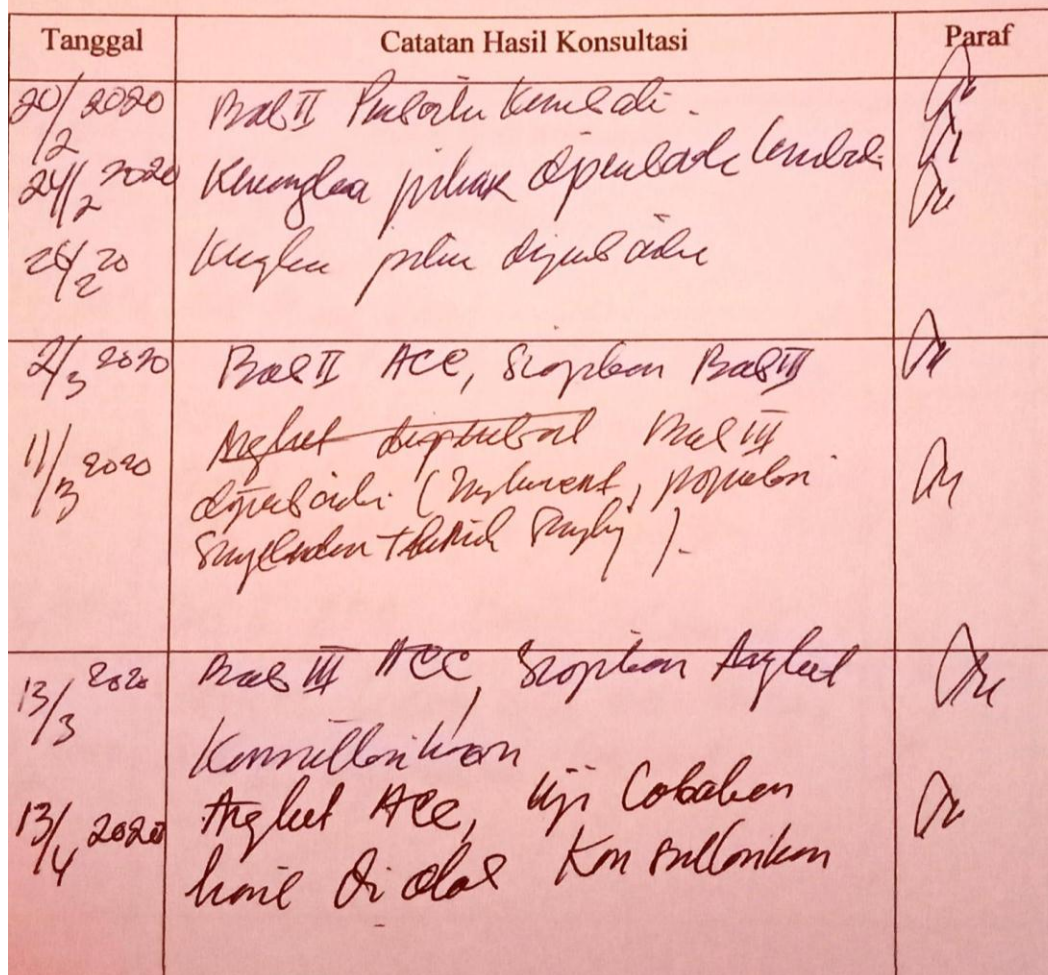 Tanggal Catatan Hasil Konsultasi Paraf
20/2 2020 Bab II Perbaiki Kembali.
24/2 2020 Kerangka pikir diperbaiki kembali.
2/20 Kerangka pikir diperbaiki
2/3 2020 Bab II ACC, Siapkan Bab III
11/3 2020 Angket Bab III
diperbaiki (Instrument, populasi
).
13/3 2020 Bab III ACC, Siapkan Angket
Konsultasikan
13/4 2020 Angket ACC, Uji Cobakan
hasil di olah Konsultasikan